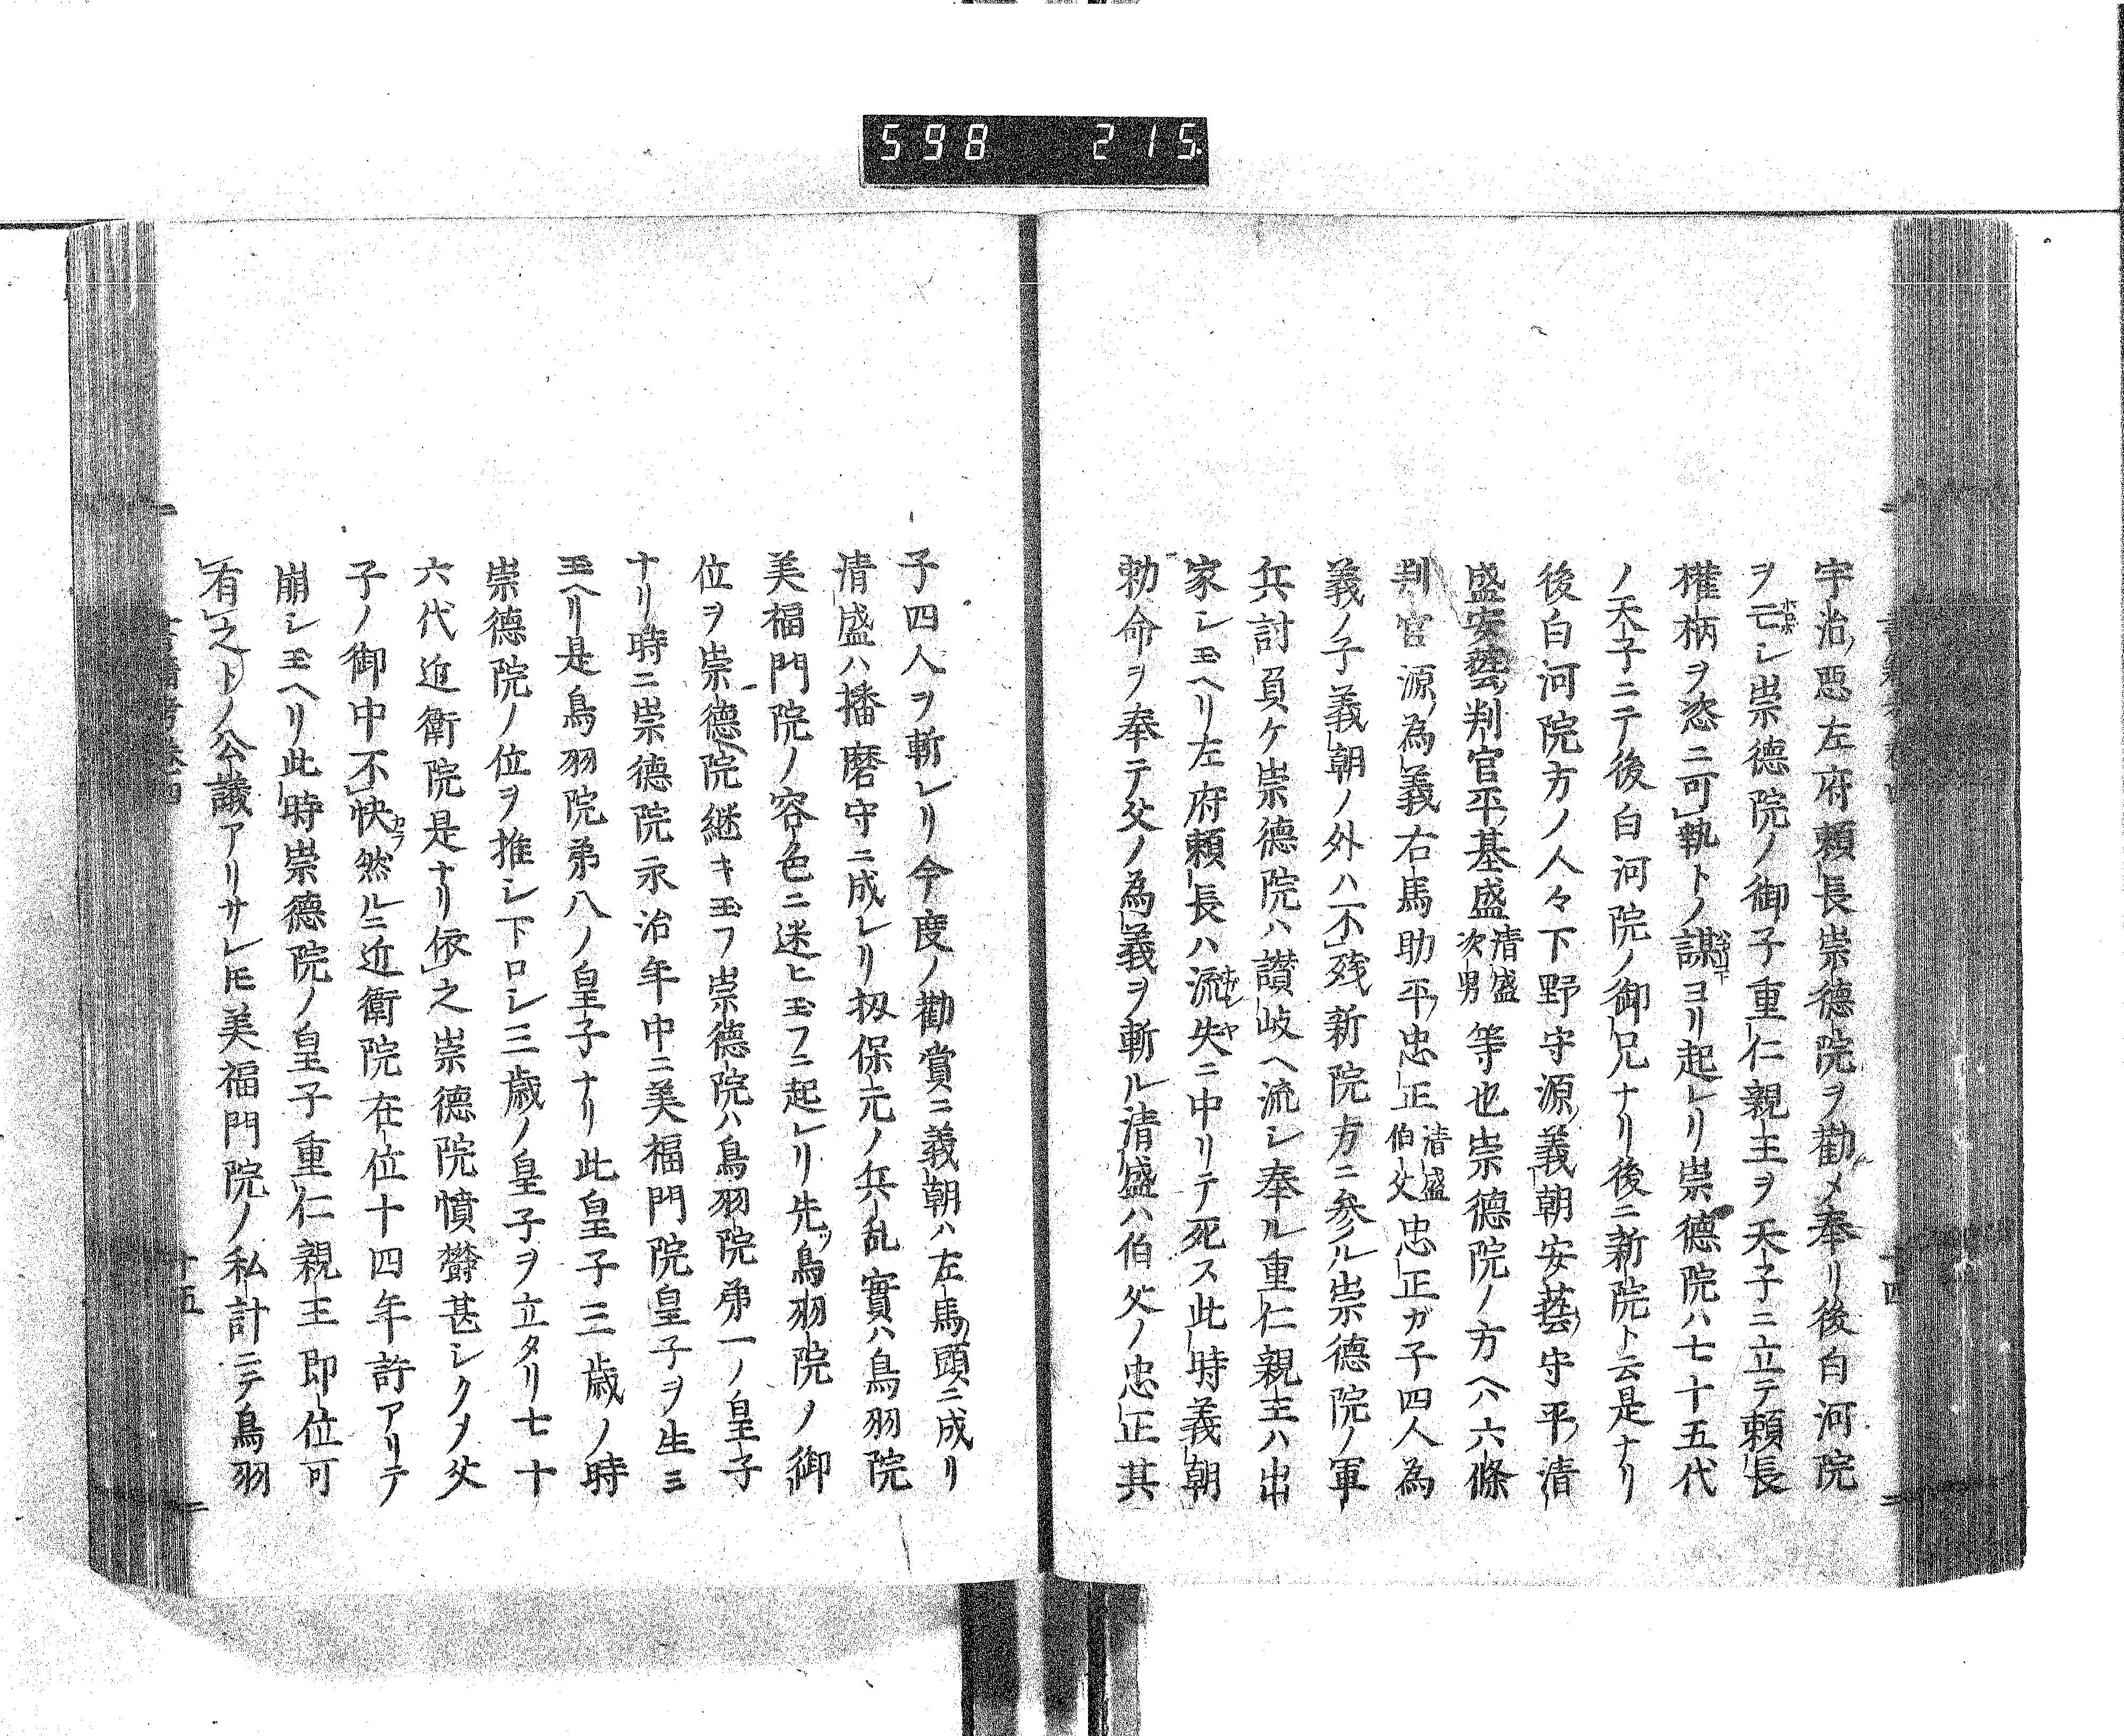 598 215
宇治ノ悪左府頼長崇徳院ヲ勸メ奉リ後白河院
ヲ亡シ崇徳院ノ御子重仁親王ヲ天子ニ立テ頼長
權柄ヲ恣ニ可執トノ謀ヨリ起レリ崇徳院ハ七十五代
ノ天子ニテ後白河院ノ御兄ナリ後ニ新院ト云是ナリ
後白河院方ノ人々下野守源ノ義朝安藝ノ守平ノ清
盛安藝ノ判官平ノ基盛清盛次男等也崇徳院ノ方ヘハ六條
判官源ノ為義右馬助平ノ忠正清盛伯父忠正ガ子四人為
義ノ子義朝ノ外ハ不残新院方ニ参ル崇徳院ノ軍
兵討負ケ崇徳院ハ讃岐ヘ流シ奉ル重仁親王ハ出
家シ玉ヘリ左府頼長ハ流失ニ中リテ死ス此時義朝
勅命ヲ奉テ父ノ為義ヲ斬ル清盛ハ伯父ノ忠正其
子四人ヲ斬レリ今度ノ勸賞ニ義朝ハ左馬ノ頭ニ成リ
清盛ハ播磨守ニ成レリ扨保元ノ兵乱實ハ鳥羽院
美福門院ノ容色ニ迷ヒ玉フニ起レリ先ツ鳥羽院ノ御
位ヲ崇徳院継キ玉フ崇徳院ハ鳥羽院弟一ノ皇子
ナリ時ニ崇徳院永治年中ニ美福門院皇子ヲ生ミ
玉ヘリ是鳥羽院弟八ノ皇子ナリ此皇子三歳ノ時
崇徳院ノ位ヲ推シ下ロシ三歳ノ皇子ヲ立タリ七十
六代近衛院是ナリ依之崇徳院憤欝甚シクソノ父
子ノ御中不快カラ然ルニ近衛院在位十四年許アリテ
崩シ玉ヘリ此時崇徳院ノ皇子重仁親王即位可
有之トノ公議アリサレ𪜈美福門院ノ私計ニテ鳥羽
十五